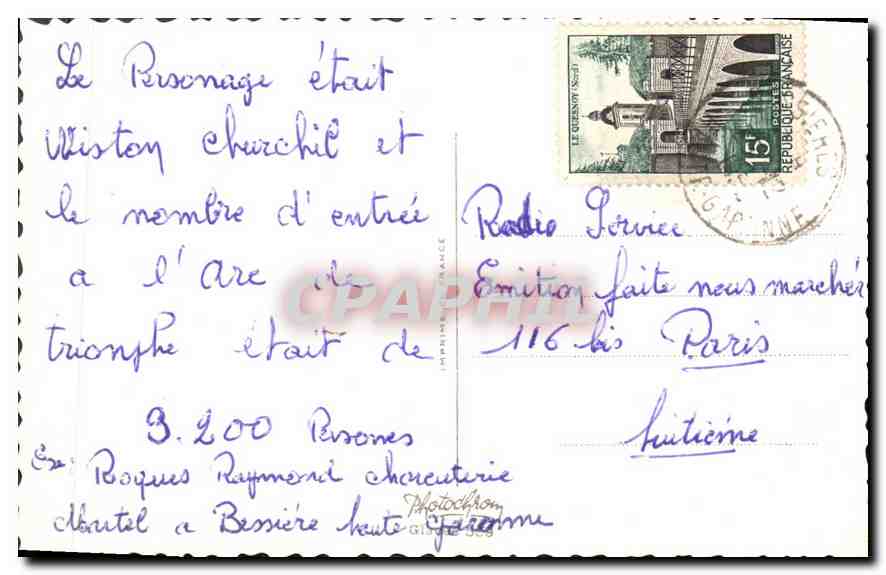 Le Personage était
Wiston Churchil et
le nombre d'entrée
a l'Arc de
trionphe était de
3.200 Personnes
Exp: Roques Raymond charcuterie
Martel a Bessière haute garonne
Photochrom
IMPRIMÉ EN FRANCE
CPAPHIL
LE QUESNOY (Nord)
15F
POSTES
REPUBLIQUE FRANÇAISE
GARONNE
Radio Service
Emition faite nous marchér
116 bis Paris
huitième